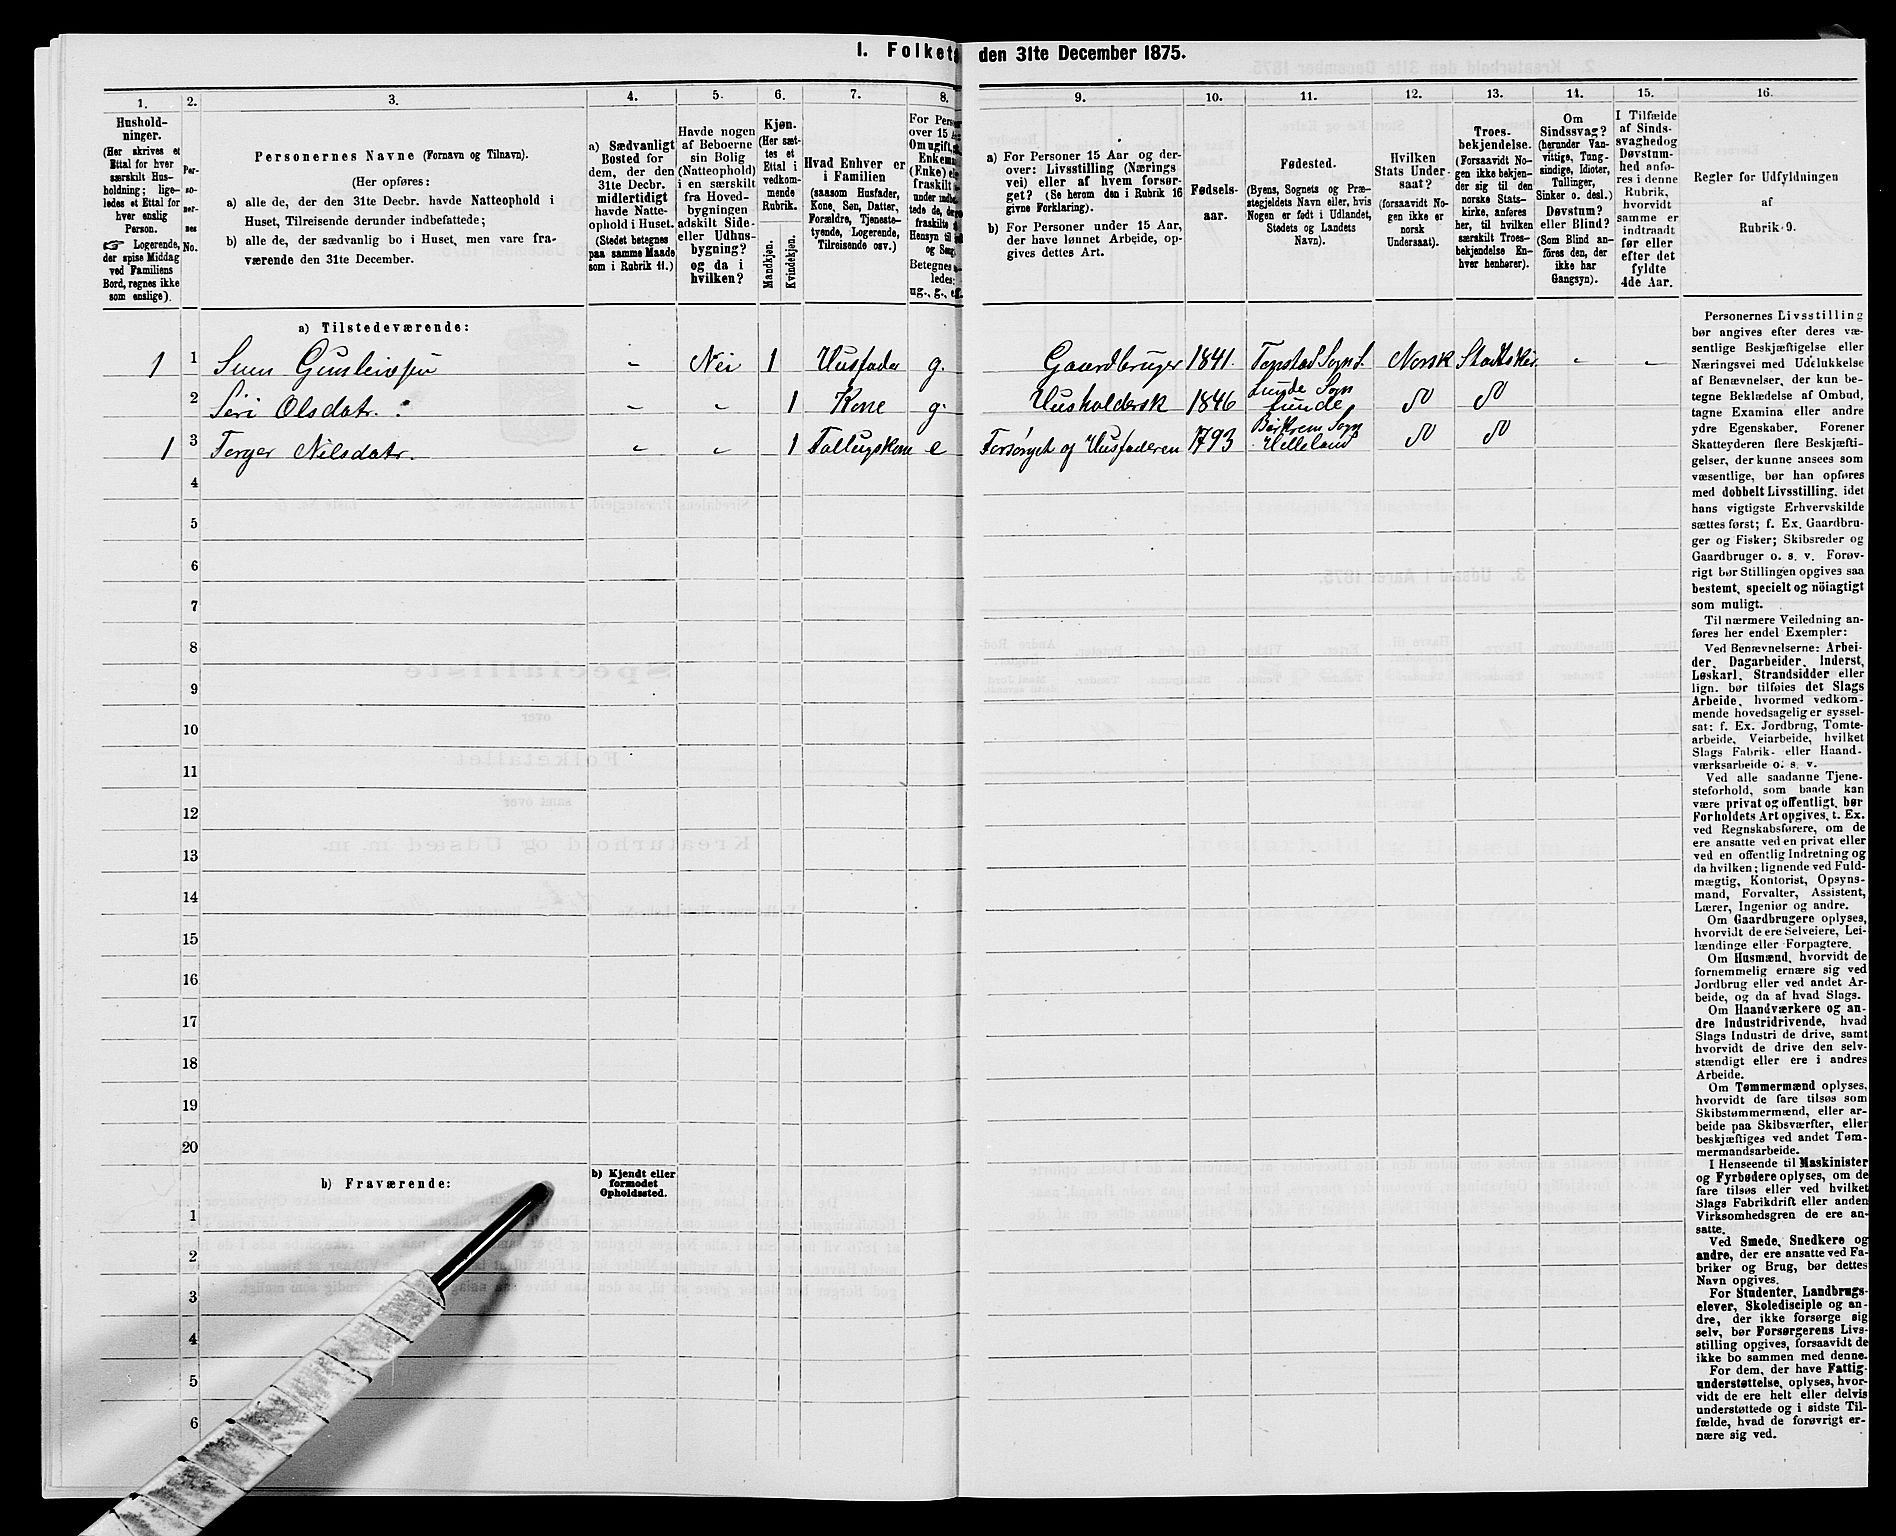 I. Folket
den 31te December 1875.
1.
2.
3.
4.
5.
6.
7.
8.
9.
10.
11.
12.
13.
14.
15.
16.
Hushold-
ninger.
(Her skrives et
Ettal for hver
særskilt Hus-
holdning; lige-
ledes et Ettal for
hver enslig
Person.
☞ Logerende,
der spise Middag
ved Familiens
Bord, regnes ikke
som enslige).
Per-
so-
ner-
nes
No.
Personernes Navne (Fornavn og Tilnavn).
(Her opføres:
a) alle de, der den 31te Decbr. havde Natteophold i
Huset, Tilreisende derunder indbefattede;
b) alle de, der sædvanlig bo i Huset, men vare fra-
værende den 31te December.
a) Sædvanligt
Bosted for
dem, der den
31te Decbr.
midlertidigt
havde Natte-
ophold i Huset.
(Stedet betegnes
paa samme Maade
som i Rubrik 11.)
Havde nogen
af Beboerne
sin Bolig
(Natteophold)
i en særskilt
fra Hoved-
bygningen
adskilt Side-
eller Udhus-
bygning?
og da i
hvilken?
Kjøn.
(Her sæt-
tes et
Ettal i
vedkom-
mende
Rubrik.
Mandkjøn.
Kvindekjøn.
Hvad Enhver er
i Familien
(saasom Husfader,
Kone, Søn, Datter,
Forældre, Tjeneste-
tyende, Logerende,
Tilreisende osv.)
For Perso
over 15 A
Om ugift,
Enkem
(Enke) el
fraskilt
under indbe
tede de, der
fraskilte
Hensyn til
og Seng.
Betegnes
ledes:
ug., g., e
a) For Personer 15 Aar og der-
over: Livsstilling (Nærings
vei) eller af hvem forsør-
get? (Se herom den i Rubrik 16
givne Forklaring).
b) For Personer under 15 Aar,
der have lønnet Arbeide, op-
gives dettes Art.
Fødsels-
aar.
Fødested.
(Byens, Sognets og Præ-
stegjeldets Navn eller, hvis
Nogen er født i Udlandet,
Stedets og Landets
Navn).
Hvilken
Stats Under-
saat?
(forsaavidt No-
gen ikke er
norsk
Undersaat).
Troes-
bekjendelse.
(Forsaavidt No-
gen ikke bekjen-
der sig til den
norske Stats-
kirke, anføres
her, til hvilken
særskilt Troes-
bekjendelse En-
hver henhører).
Om
Sindssvag?
(herunder Van-
vittige, Tung-
sindige, Idioter,
Tullinger,
Sinker o. desl.)
Døvstum?
eller Blind?
(Som Blind an-
føres den, der
ikke har
Gangsyn).
I Tilfælde
af Sinds-
svaghed og
Døvstum-
hed anfø-
res i denne
Rubrik,
hvorvidt
samme er
indtraadt
før eller
efter det
fyldte
4de Aar.
Regler for Udfyldningen
af
Rubrik 9.
a) Tilstedeværende:
1 1 Nei 1 Husfader g. Gaardbruger 1841. Tonstad Sogn Norsk Statskir
2 Siri Olsdatr. 1 Kone g. Husholdersk 1846 Lunde Sogn Lunde
1 3 Nilsdatr. 1 e Forsørget af Husfaderen 1793 Bakrem Sogn Helleland
4
5
6
7
8
9
10
11
12
13
14
15
16
17
18
19
20
b) Fraværende:
b) Kjendt eller
formodet
Opholdssted.
1
2
3
4
5
6
Personernes Livsstilling
bør angives efter deres væ-
sentlige Beskjæftigelse eller
Næringsvei med Udelukkelse
af Benævnelser, der kun be-
tegne Beklædelse af Ombud,
tagne Examina eller andre
ydre Egenskaber. Forener
Skatteyderen flere Beskjæfti-
gelser, der kunne ansees som
væsentlige, bør han opføres
med dobbelt Livsstilling, idet
hans vigtigste Erhvervskilde
sættes først; f. Ex. Gaardbru-
ger og Fisker; Skibsreder og
Gaardbruger o. s. v. Forøv-
rigt bør Stillingen opgives saa
bestemt, specielt og nöiagtigt
som muligt.
Til nærmere Veiledning an-
føres her endel Exempler:
Ved Benævnelserne: Arbei-
der, Dagarbeider, Inderst,
Løskarl, Strandsidder eller
lign. bør tilføies det Slags
Arbeide, hvormed vedkom-
mende hovedsagelig er syssel-
sat: f. Ex. Jordbrug, Tomte-
arbeide, Veiarbeide, hvilket
Slags Fabrik- eller Haand-
værksarbeide o. s. v.
Ved alle saadanne Tjene-
steforhold, som baade kan
være privat og offentligt, bør
Forholdets Art opgives, t. Ex.
ved Regnskabsførere, om de
ere ansatte ved en privat eller
ved en offentlig Indretning og
da hvilken; lignende ved Fuld-
mægtig, Kontorist, Opsyns-
mand, Forvalter, Assistent,
Lærer, Ingeniør og andre.
Om Gaardbrugere oplyses,
hvorvidt de ere Selveiere, Lei-
lændinge eller Forpagtere.
Om Husmænd, hvorvidt de
fornemmelig ernære sig ved
Jordbrug eller ved andet Ar-
beide, og da af hvad Slags.
Om Haandværkere og an-
dre Industridrivende, hvad
Slags Industri de drive, samt
hvorvidt de drive den selv-
stændigt eller ere i andres
Arbeide.
Om Tømmermænd oplyses,
hvorvidt de fare tilsøs som
Skibstømmermænd, eller ar-
beide paa Skibsværfter, eller
beskjæftiges ved andet Tøm-
mermandsarbeide.
I Henseende til Maskinister
og Fyrbødere oplyses, om de
fare tilsøs eller ved hvilket
Slags Fabrikdrift eller anden
Virksomhedsgren de ere an-
satte.
Ved Smede, Snedkere og
andre, der ere ansatte ved Fa-
briker og Brug, bør dettes
Navn opgives.
For Studenter, Landbrugs-
elever, Skoledisciple og an-
dre, der ikke forsørge sig
selv, bør Forsørgerens Livs-
stilling opgives, forsaavidt de
ikke bo sammen med denne.
For dem, der have Fattig-
understøttelse, oplyses, hvor-
vidt de ere helt eller delvis
understøttede og i sidste Til-
fælde, hvad de forøvrigt er-
nære sig ved.